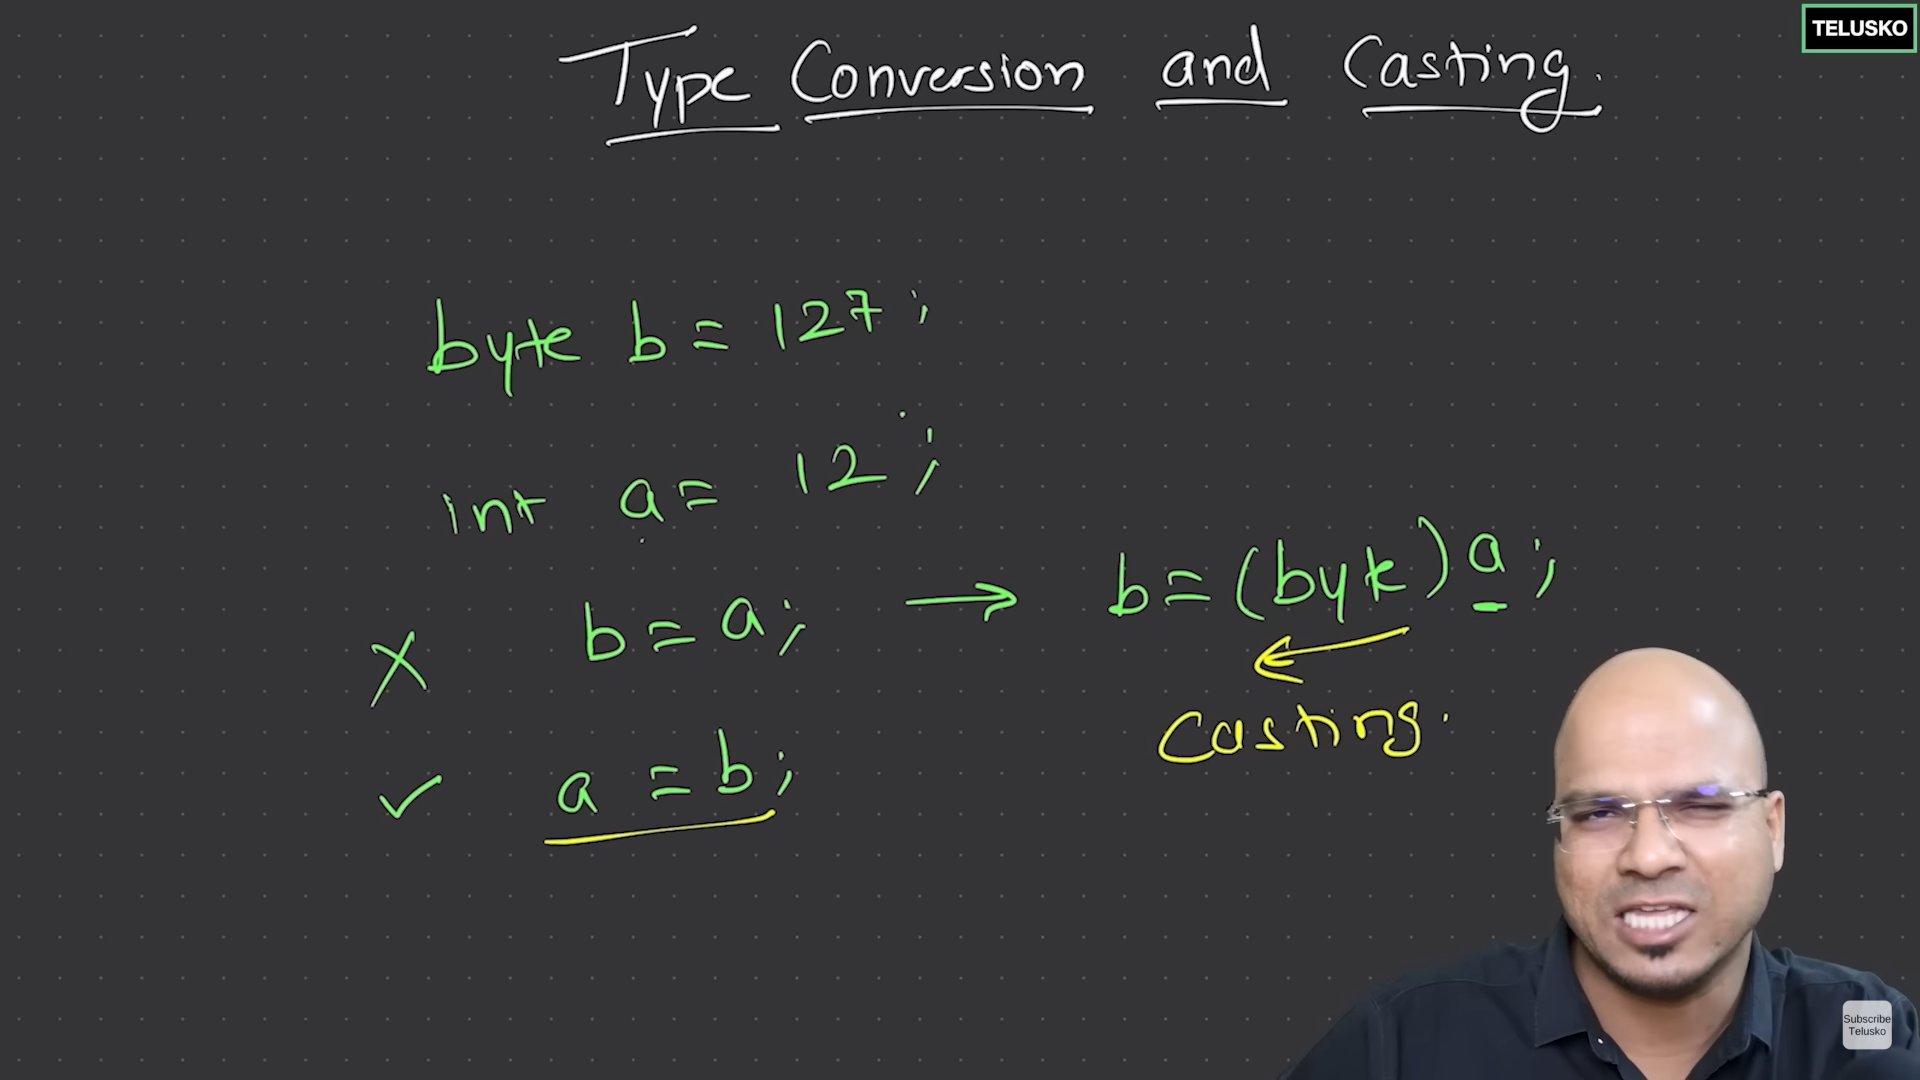 TELUSKO
Type Conversion and Casting.
byte b = 127;
int a = 12;
X b = a; → b = (byte) a;
Casting.
✓ a = b;
Subscribe
Telusko